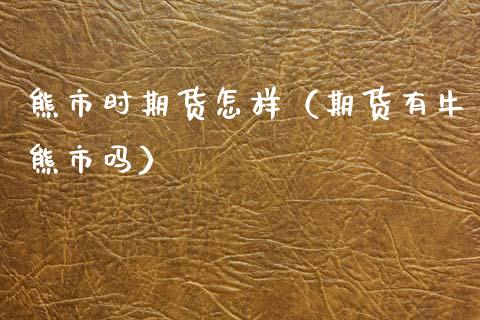 熊市时期货怎样（期货有牛
熊市吗）